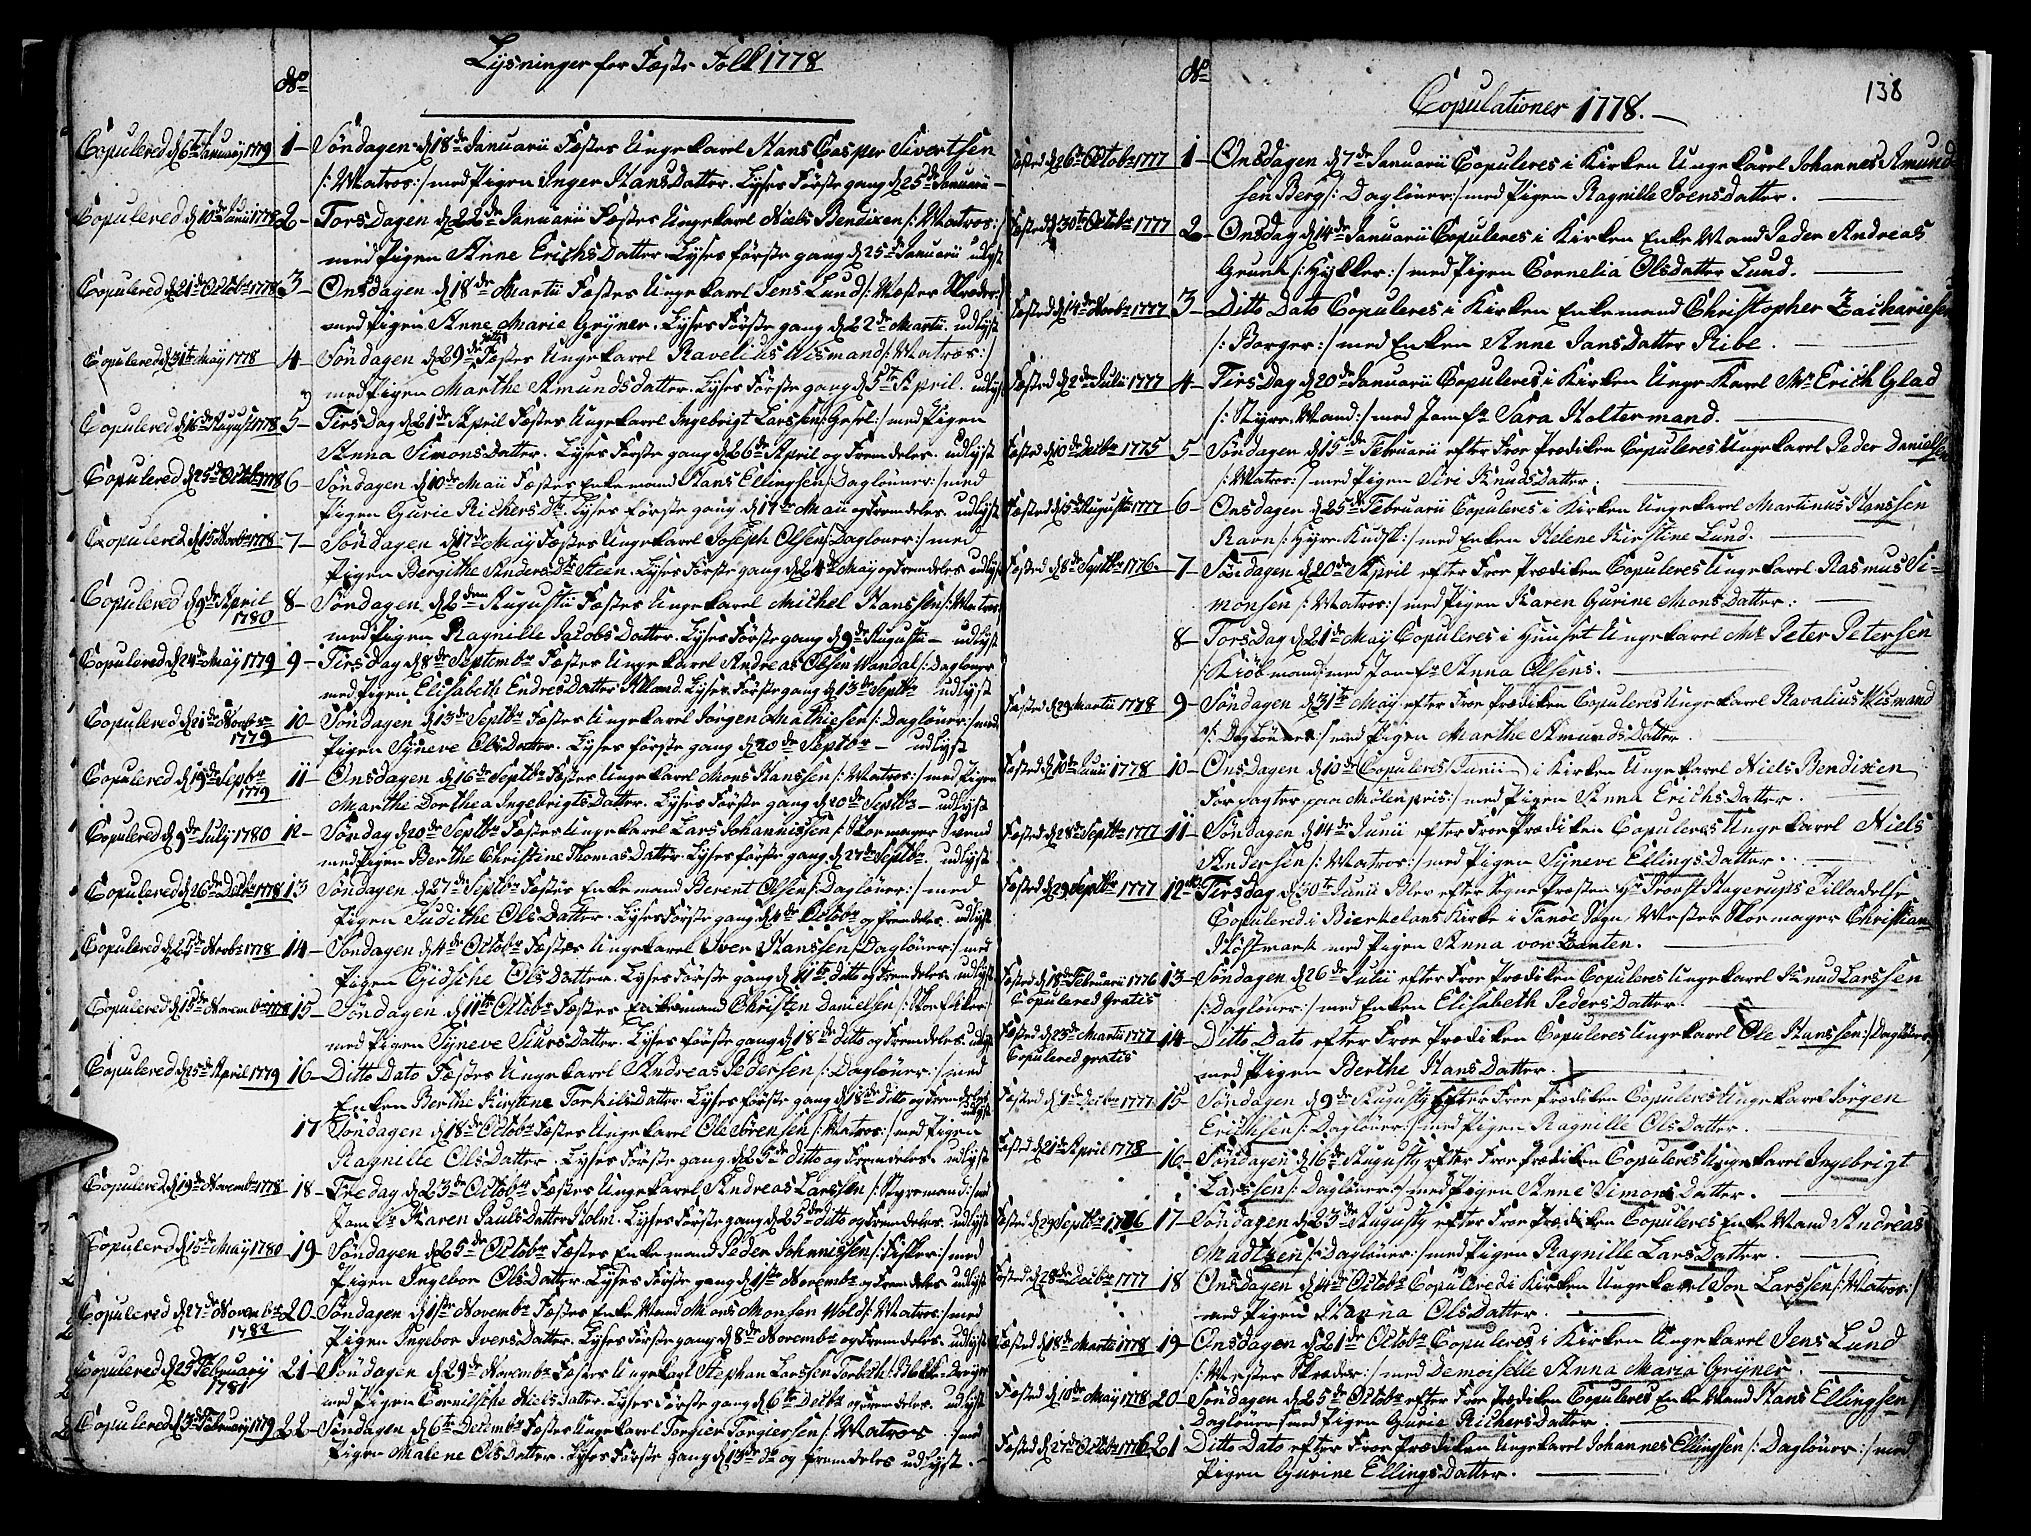 Lysninger for Fæste Folk 1778
No
Copulered d 6te January 1779 1- Søndagen d 18de Januarii Fæstes Ungekarl Hans Casper Sivertsen
/: Matros:/ med Pigen Inger HansDatter. Lyses Første gang d 25de Januarii -
Copulered d 10de Junii 1778 2- Torsdagen d 22de Januarii Fæstes Ungekarl Niels Bendixen /: Matros:/
med Pigen Anne ErichsDatter Lyses første gang d 25de Januarii udlyst
Copulered d 21de Octobr 1778 3- Onsdagen d 18de Martii Fæstes Ungekarl Jens Lund /: Mæster Skræder:/
med Pigen Anne Marie Gryner. Lyses Første gang d 22de Martii. udlyst
Copulered d 31te May 1778 4- Søndagen d 29de ditto Fæstes Ungekarl Ravelius Wismand /: Matros:/
med Pigen Marthe AmundsDatter. Lyses Første gang d 5te April. udlyst
Copulered d 16de August 1778 5- TirsDag d 21de April Fæstes Ungekarl Ingebrigt Larssen /: Gesel:/ med Pigen
Anna SimonsDatter. Lyses Første gang d 26de April og Fremdeles. udlyst
Copulered d 25de Octbr 1778 6- Søndagen d 10de Maii Fæstes Enkemand Hans Ellingsen /: Dagløner:/ med
Pigen Gurie Richersdtr. Lyses første gang d 17de Maii og Fremdeles. udlyst
Copulered d 15 Novbr 1778 7- Søndagen d 17de May Fæstes Ungekarl Joseph Olsen /: Dagløner:/ med
Pigen Bergithe Andersdtr Steen. Lyses Første gang d 24de May og Fremdeles udlyst
Copulered d 9de April 1780 8- Søndagen d 2den Augustii Fæstes Ungekarl Michel Hanssen /: Matros
med Pigen Ragnille JacobsDatter. Lyses Første gang d 9de Augustii - udlyst
Copulered d 24de May 1779 9- Tirsdag d 8de Septembr Fæstes Ungekarl Andreas Olsen Wandal /: Dagløner
med Pigen Elisabeth EndresDatter Alland. Lyses Første gang d 13de Septbr udlyst
Copulered d 21de Novbr 1779 10- Søndagen d 13de Septbr Fæstes Ungekarl Jørgen Mathiesen /: Dagløner:/ med
Pigen Synneve OlsDatter. Lyses første gang d 20de Septbr - udlyst
Copulered d 19de Sepbr 1779 11- Onsdagen d 16de Septbr Fæstes Ungekarl Mons Hanssen /: Matros:/ med Pigen
Marthe Dorthea IngebrigtsDatter. Lyses Første gang d 20de Septbr - udlyst
Copulered d 9de July 1780 12- Søndag d 20de Septbr Fæstes Ungekarl Lars Johannissen /: Skomager Svend
med Pigen Berthe Christine ThomasDatter. Lyses første gang d 27de Septbr. udlyst
Copulered d 26de Decbr 1778 13 Søndagen d 27de Septbr Fæstes Enkemand Berent Olsen /: Dagløner:/ med
Pigen Judithe OlsDatter. Lyses Første gang d 4de Octobr og fremdeles. udlyst
Copulered d 25de Novbr 1778 14- Søndagen d 4de Octobr Fæstes Ungekarl Iver Hanssen /: Dagløner:/ med
Pigen Gidsche OlsDatter. Lyses Første gang d 11te ditto og Fremdeles. udlyst
Copulered d 15de Novembr 1778 15- Søndagen d 11te Octobr Fæstes Enkemand Christen Danielsen /: Skoeflikker:/
med Pigen Syneve SiursDatter. Lyses første gang d 18de ditto og Fremdeles udlyst
Copulered d 25de April 1779 16- Ditto Dato Fæstes Ungekarl Andreas Pedersen /: Dagløner:/ med
Enken Berthe Kirstine TorkilsDatter. Lyses første gang d 18de ditto og Fremdeles udlyst
17 Søndagen d 18de Octobr Fæstes Ungekarl Ole Sørensen /: Matros:/ med Pigen
Ragnille OlsDatter. Lyses Første gang d 25de ditto og Fremdeles. udlyst
Copulered d 19de Novembr 1778 18- Fredag d 23de Octobr Fæstes Ungekarl Andreas Larssen /: Styremand:/ med
Jomfr Karen PaulsDatter Holm. Lyses Første gang d 25de ditto og Fremdeles. udlyst
Copulered d 15de May 1780 19- Søndagen d 25de Octobr Fæstes Enkemand Peder Johannissen /: Fisker:/ med
Pigen Ingebor OlsDatter. Lyses Første gang d 1ste Novembr og Fremdeles udlyst
Copulered d 27de Novembr 1782 20- Søndagen d 1ste Novembr Fæstes Enke Mand Mons Monsen Wold /: Matros:/ med
Pigen Ingebor IversDatter. Lyses Første gang d 8de Novembr og Fremdeles. udlyst
Copulered d 25 February 1781 21- Søndagen d 29de Novembr Fæstes Ungekarl Stephan Larssen Torbeth /: Blokke-Dreyer
med Pigen Cornilische NielsDatter. Lyses Første gang d 6te Decbr og Fremdeles. udlyst
Copulered d 3de February 1779 22- Søndagen d 6te Decembr Fæstes Ungekarl Torgier Torgiersen /: Matros :/ med
Pigen Malene OlsDatter. Lyses Første gang d 13de Do og fremdeles udlyst.
138
No
Copulationer 1778.
Fæsted d 26de Octobr 1777 1- Onsdagen d 7de Januarii Copuleres i Kirken Ungekarl Johannes Amund-
sen Berg /: Dagløner:/ med Pigen Ragnille JoensDatter.
Fæsted d 30te Octobr 1777 2- Onsdag d 14de Januarii Copuleres i Kirken Enke Mand Peder Andreas
Grunt /: Hykker:/ med Pigen Cornelia Olsdatter Lund.
Fæsted d 14de Novbr 1777 3- Ditto Dato Copuleres i Kirken Enkemand Christopher Zachariesen
/: Borger:/ med Enken Anne JansDatter Ribe.
Fæsted d 2de Julii 1777 4- TirsDag d 20de Januarii Copuleres i Kirken Unge Karl Mr Erich Glad
/: Styre-Mand:/ med Jomfr Sara Haltermand.
Fæsted d 10de Decbr 1775 5- Søndagen d 15de Februarii efter Froe Prædiken Copuleres Ungekarl Peder Danielsen
/: Matros:/ med Pigen Siri KnudsDatter.
Fæsted d 15de Augusti 1777 6- Onsdagen d 25de Februarii Copuleres i Kirken Ungekarl Martinus Hanssen
Ravn /: Hyre-Kudsk:/ med Enken Helene Kirstine Lund.
Fæsted d 8de Septbr 1776 7- Søndagen d 20de April efter Froe Prædiken Copuleres Ungekarl Rasmus Si-
monsen /: Matros:/ med Pigen Karen Gurine MonsDatter.
8- Torsdag d 21de May Copuleres i Huuset Ungekarl Mr Peter Petersen
/: Kiøbmand:/ med Jomfr Anna Olsens.
Fæsted d 29 Martii 1778 9- Søndagen d 31te May efter Froe Prædiken Copuleres Ungekarl Ravalius Wismand
/: Dagløner:/ med Pigen Marthe AmundsDatter.
Fæsted d 10de Junii 1778 10- Onsdagen d 10de Copuleres Junii i Kirken Ungekarl Niels Bendixen
Forpagter paa Mølenpris:/ med Pigen Anna ErichsDatter.
Fæsted d 28de Septbr 1777 11- Søndagen d 14de Junii efter Froe Prædiken Copuleres Ungekarl Niels
Andersen /: Matros:/ med Pigen Syneve EllingsDatter.
Fæsted d 29 Septbr 1777 12- Tirsdag d 30te Junii Blev efter Sogne Præsten Hr Provst Hagerups Tilladelse
Copulered i Bierkelans Kirke i Fanøe Sogn, Mester Skomager Christian
Høstmark med Pigen Anna von Zanten.
Fæsted d 18de Februarii 1776 13- Søndagen d 26de Julii efter Froe Prædiken Copuleres Ungekarl Knud Larssen
Copulered Gratis /: Dagløner:/ med Enken Elisabeth PedersDatter.
Fæsted d 23de Martii 1777 14- Ditto Dato efter Froe Prædiken Copuleres Ungekarl Ole Hanssen /: Dagløner:/
Copulered gratis med Pigen Berthe HansDatter.
Fæsted d 1 Decbr 1777 15- Søndagen d 9de Augusty Efter Froe Prædiken Copuleres Ungekarl Jørgen
Erichsen /: Dagløner:/ med Pigen Ragnille OlsDatter.
Fæsted d 21de April 1778 16- Søndagen d 16de Augusty efter Froe Prædiken Copuleres Ungekarl Ingebrigt
Larssen /: Dagløner:/ med Pigen Anne SimonsDatter.
Fæsted d 29 Septbr 1776 17- Søndagen d 23de Augusty efter Froe Prædiken Copuleres Enke Mand Andreas
Madtzen /: Dagløner:/ med Pigen Ragnille LarsDatter.
Fæsted d 28de Decbr 1777 18 Onsdagen d 14de Octobr Copulered i Kirken Ungekarl Jon Larssen /: Matros:/
med Pigen Hanna OlsDatter.
Fæsted d 18de Martii 1778 19- Onsdagen d 21de Octobr Copuleres i Kirken Ungekarl Jens Lund
/: Mester Skræder:/ med Demoiselle Anna Maria Gryner.
Fæsted d 10de May 1778 20- Søndagen d 25de Octobr efter Froe Prædiken Copuleres Enke Mand Hans Ellingsen
Dagløner /med Pigen Gurie RichersDatter
Fæsted d 27de Octbr 1776 21 Ditto Dato efter Froe Prædiken Ungekarl Johannes Ellingsen /: Dagløner:/ med
Pigen Gurine EllingsDatter.